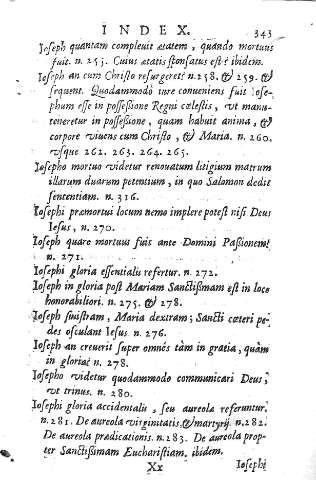 INDEX. 343
Ioseph quantam compleuit ætatem, quando mortuus
fuit. n. 253. Cuius ætatis sponsatus est? ibidem.
Ioseph an cum Christo resurgeret? n.258. & 259. &
sequent. Quodammodò iure conueniens fuit Iose-
phum esse in possessione Regni cœlestis, vt manu-
teneretur in possessione, quam habuit anima, &
corpore viuens cum Christo, & Maria. n. 260.
vsque 262. 263. 264. 265.
Iosepho mortuo videtur renouatum litigium matrum
illarum duarum petentium, in quo Salomon dedit
sententiam. n. 316.
Iosephi præmortui locum nemo implere potest nisi Deus
Iesus, n. 270.
Ioseph quare mortuus fuis ante Domini Passionem?
n. 271.
Iosephi gloria essentialis refertur. n. 272.
Ioseph in gloria post Mariam Sanctissimam est in loco
honorabiliori. n. 275. & 278.
Ioseph sinistram, Maria dextram; Sancti cæteri pe-
des osculant Iesus n. 276.
Ioseph an creuerit super omnes tàm in gratia, quàm
in gloria? n. 278.
Iosepho videtur quodammodo communicari Deus,
vt trinus. n. 280.
Iosephi gloria accidentalis, seu aureola referuntur.
n. 281. De aureola virginitatis, & martyrij. n.282.
De aureola prædicationis. n. 283. De aureola prop-
ter Sanctissimam Eucharistiam. ibidem.
Xx Iosephi